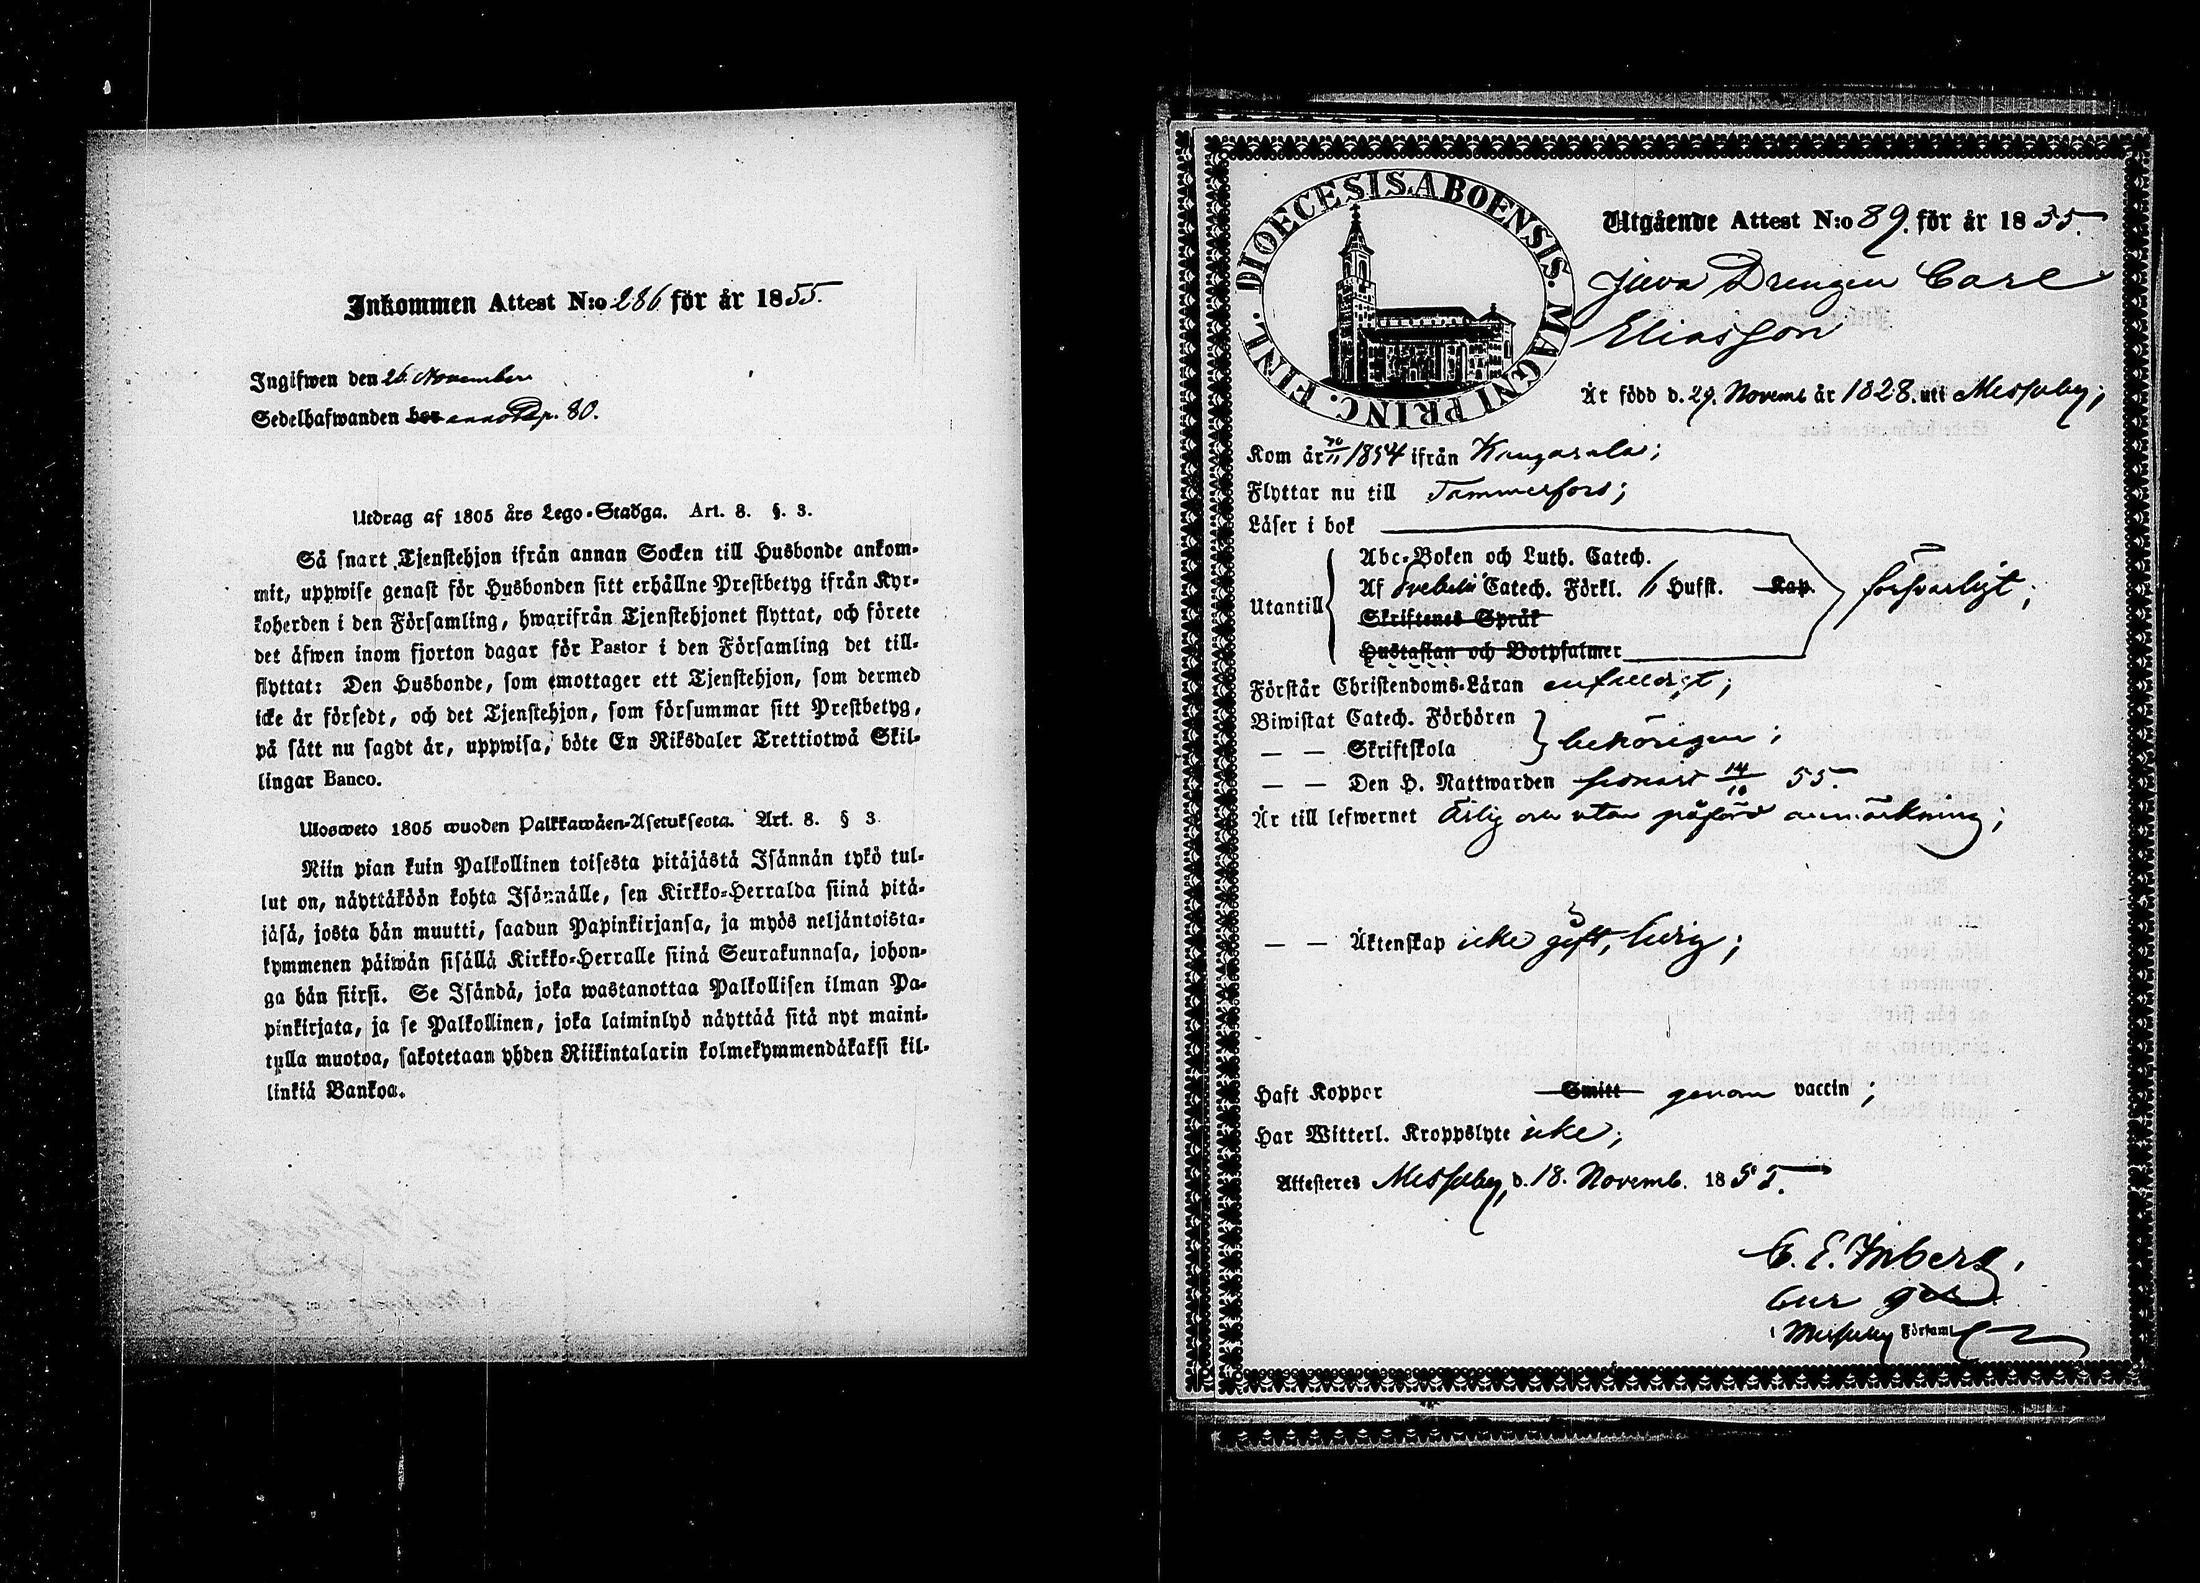 Inkommen Attest N:o 286 för år 1855.
Ingifwen den 26 November
Sedelhafwanden bor pag. 80.
Utdrag af 1805 års Lego-Stadga. Art. 8. §. 3.
Så snart Tjenstehjon ifrån annan Socken till Husbonde ankom-
mit, uppwise genast för Husbonden sitt erhållne Prestbetyg ifrån Kyr-
koherden i den Församling, hwarifrån Tjenstehjonet flyttat, och förete
det äfwen inom fjorton dagar för Pastor i den Församling det till-
flyttat: Den Husbonde, som emottager ett Tjenstehjon, som dermed
icke är försedt, och det Tjenstehjon, som försummar sitt Prestbetyg,
på sätt nu sagdt är, uppwisa, böte En Riksdaler Trettiotwå Skil-
lingar Banco.
Ulosweto 1805 wuoden Palkkawäen-Asetuksesta. Art. 8. § 3.
Niin pian kuin Palkollinen toisesta pitäjästä Isännän tykö tul-
lut on, näyttäköön kohta Isännälle, sen Kirkko-Herralda siinä pitä-
jäsä, josta hän muutti, saadun Papinkirjansa, ja myös neljäntoista-
kymmenen päiwän sisällä Kirkko-Herralle siinä Seurakunnasa, johon-
ga hän siirsi. Se Isändä, joka wastanottaa Palkollisen ilman Pa-
pinkirjata, ja se Palkollinen, joka laiminlyö näyttää sitä nyt maini-
tulla muotoa, sakotetaan yhden Riikintalarin kolmekymmendäkaksi kil-
linkiä Bankoa.
DIOECESIS.ABOENSIS.MAGNI PRINC. FINL.
Utgående Attest N:o 89. för år 1855.
Drengen Carl
Eliasson
Är född d. 29. Novemb år 1828. uti Messuby;
Kom år 1854 ifrån Kangasala;
Flyttar nu till Tammerfors;
Läser i bok
Utantill
Abc-Boken och Luth. Catech.
Af Svebelii Catech. Förkl. 6 Hufst. Kap.
Skriftenes Språk
Hustaflan och Botpsalmer
försvarligt;
Förstår Christendoms-Läran enfaldigt;
Biwistat Catech. Förhören
— — Skriftskola
behörigen;
— — Den H. Nattwarden senast 14/10 55.
Är till lefwernet Ärlig och utan påförd anmärkning;
— — Äktenskap icke gift, ledig;
Haft Koppor Smitt genom vaccin;
Har Witterl. Kroppslyte icke;
Attesteres Messuby, d. 18. Novemb. 1855.
i Messuby Församl